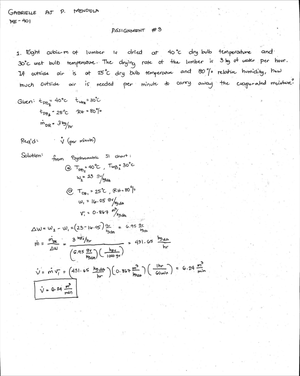 GABRIELLE AT P. MENDOLA
ME-401
ASSIGNMENT #3
1. Eight cubic-m of lumber is dried at 40°C dry bulb temperature and
30°C wet bulb temperature. The drying rate of the lumber is 3 kg of water per hour.
If outside air is at 25°C dry bulb temperature and 80% relative humidity, how
much outside air is needed per minute to carry away the evaporated moisture?
Given: t DB2 = 40°C t WB2 = 30°C
t DB1 = 25°C RH = 80%
ṁ DR = 3 kg/hr
Req'd: V̇ (per minute)
Solution: from Psychrometric SI chart:
@ T DB2 = 40°C, T WB2 = 30°C
W2 = 23 gr/kg da
@ T DB1 = 25°C, RH = 80%
W1 = 16.05 gr/kg da
V1 = 0.867 m³/kg da
ΔW = W2 - W1 = (23 - 16.05) gr/kg da = 6.95 gr/kg da
ṁ = ṁw/ΔW = 3 kg/hr / (6.95 gr/kg da)(kg/1000 gr) = 431.65 kg da/hr
V̇ = ṁV1 = (431.65 kg da/hr)(0.867 m³/kg da)(1hr/60min) = 6.24 m³/min
V̇ = 6.24 m³/min